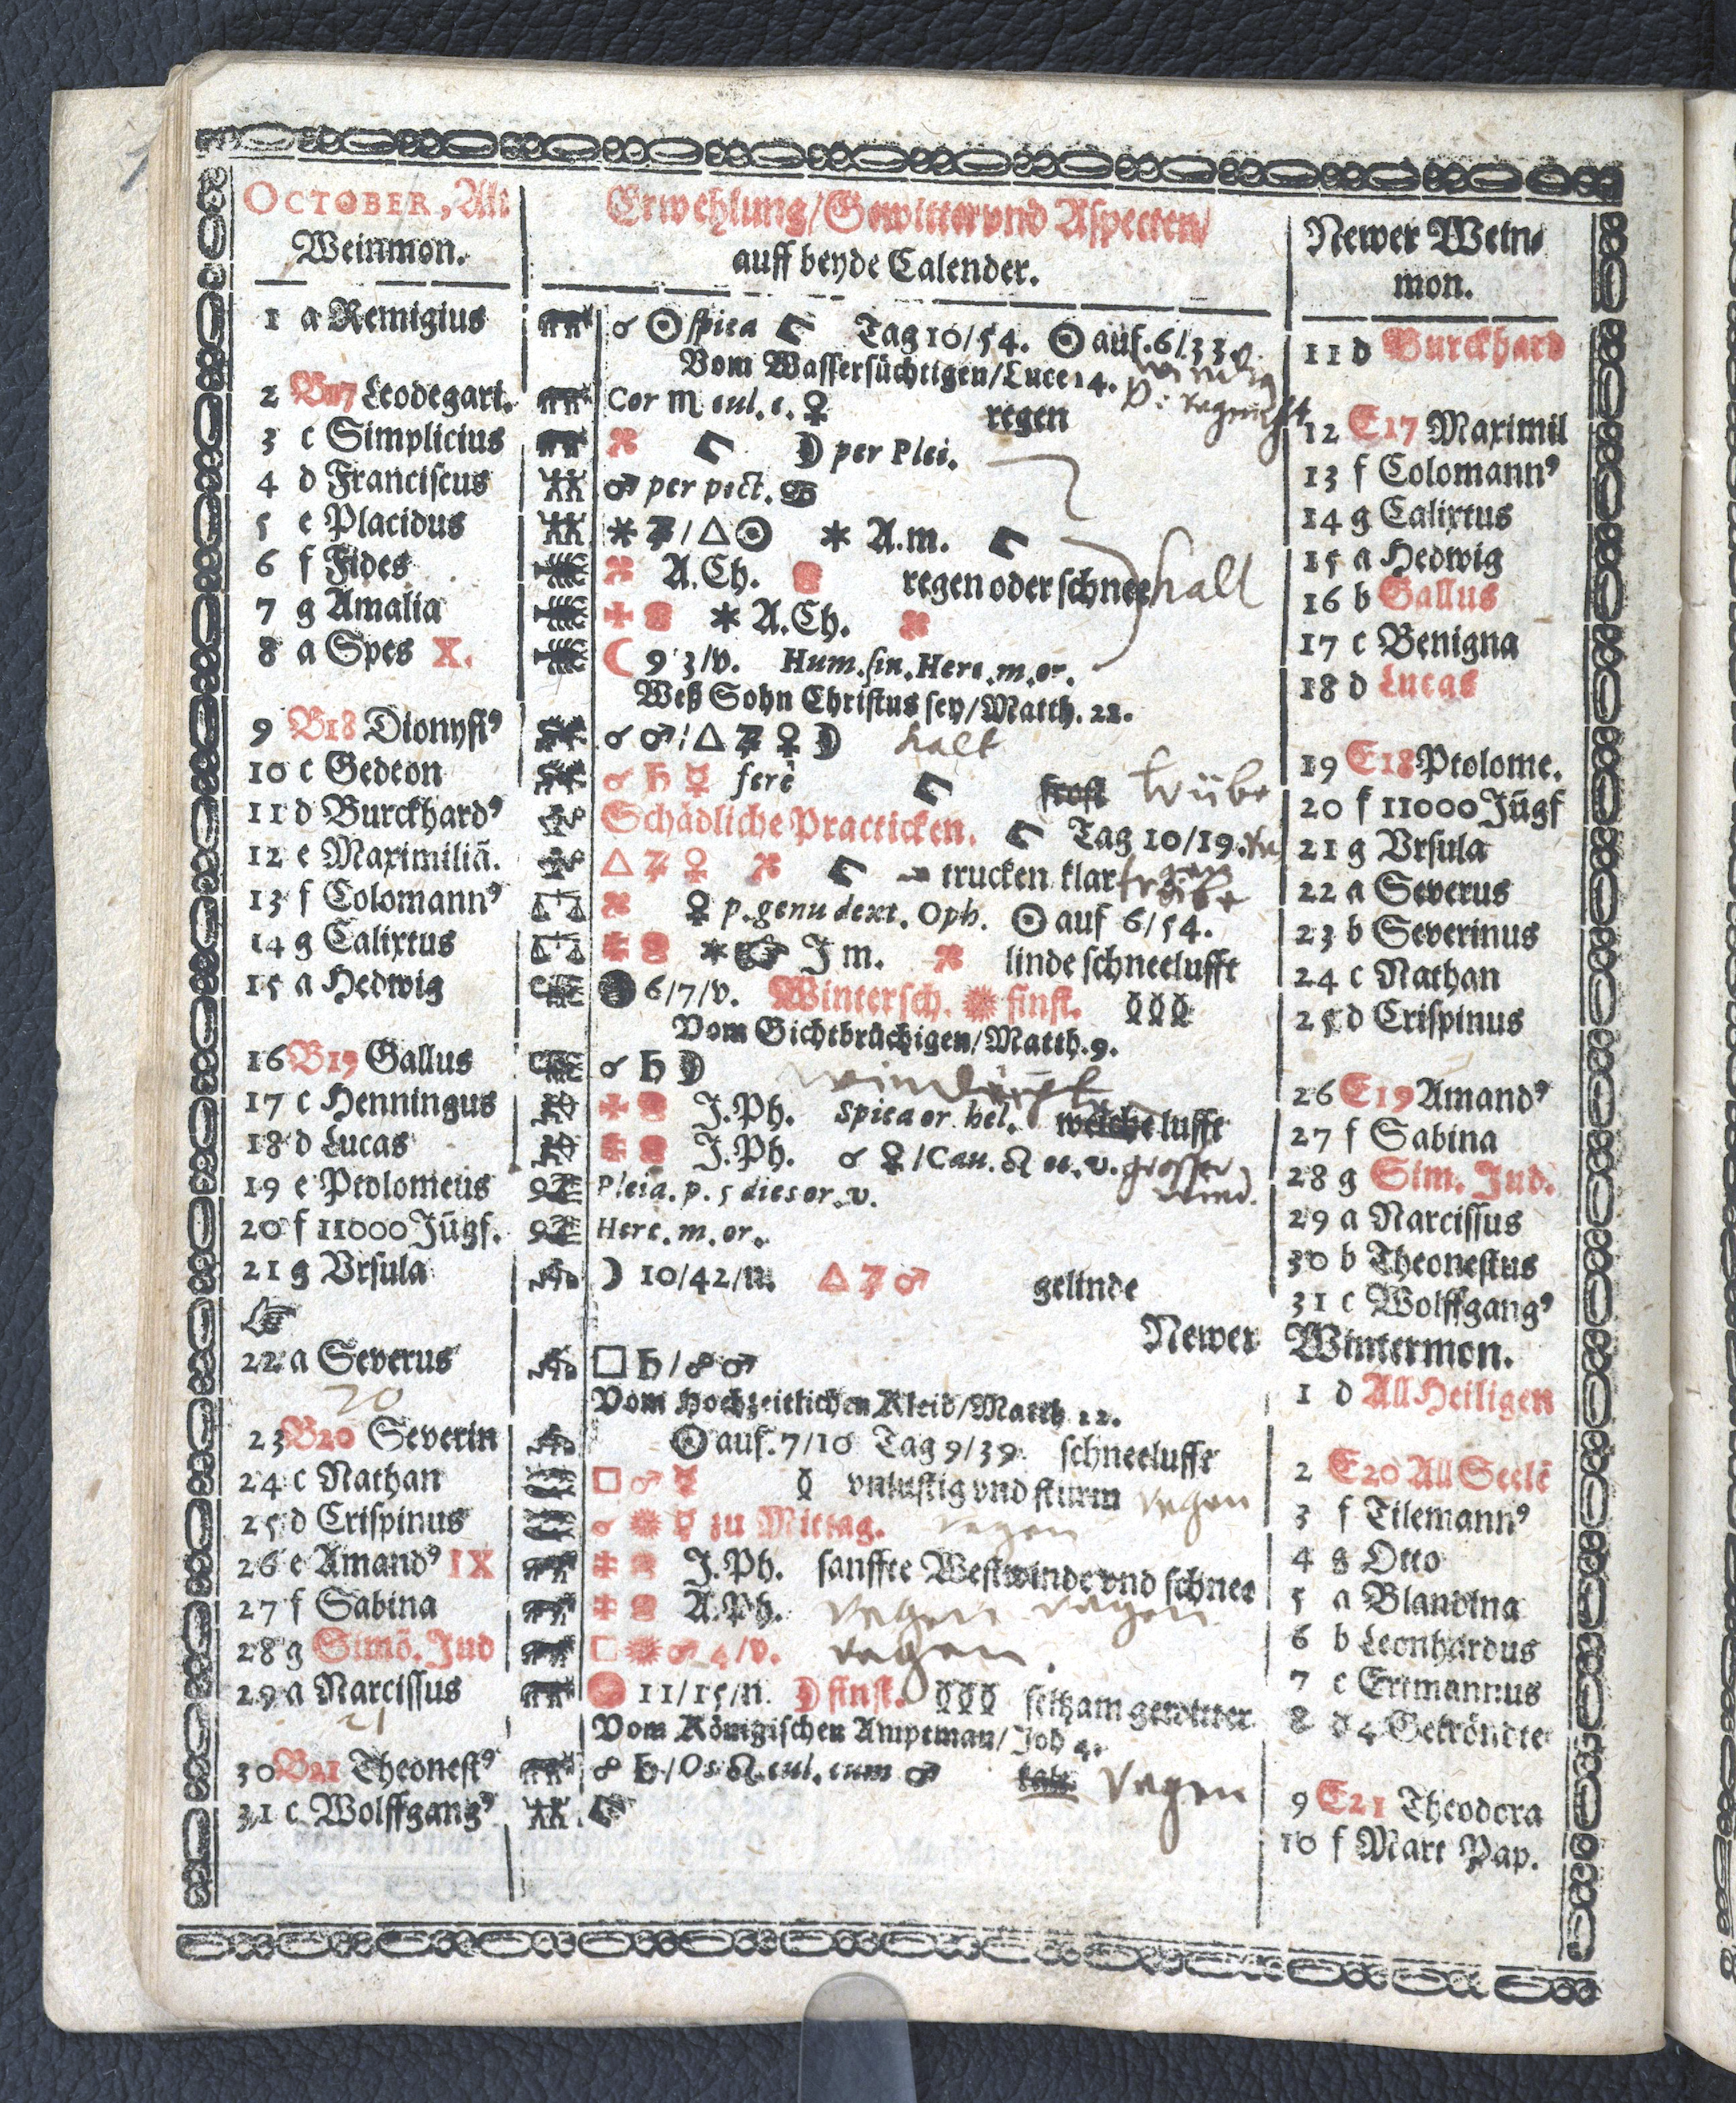 OCTOBER, Alt Erwehlung/Gewitter vnd Aspecten/ Newer Wein-
Weinmon. auff beyde Calender. mon.
1 a Remigius ☌ ☉ spica Tag 10/54. ☉ auf. 6/33 v. 11 d Burckhard
Vom Wassersüchtigen/Luce 14. windig
2 B17 Leodegart. Cor ♏ cul. c. ♀ regen 12 E17 Maximil
3 c Simplicius ☽ per Plei. 13 f Colomannꝰ
4 d Franciscus ♂ per pict. ♋ 14 g Calixtus
5 e Placidus ⚹ ♃/△☉ ⚹ A.m. 15 a Hedwig
6 f Fides A.Ch. regen oder schnee kalt 16 b Gallus
7 g Amalia ⚹ A.Ch. 17 c Benigna
8 a Spes X. ☾ 9 3/v. Hum. sin. Herc. m. or. 18 d Lucas
Weß Sohn Christus sey/Matth. 22.
9 B18 Dionysiꝰ ☌ ♂/△ ♃ ♀ ☽ kalt 19 E18 Ptolome.
10 c Gedeon ☌ ♄ ☿ ferè frost trübe 20 f 11000 Jũgf
11 d Burckhardꝰ Schädliche Practicken. Tag 10/19. 21 g Vrsula
12 e Maximiliã. △ ♃ ♀ trucken klar trübe 22 a Severus
13 f Colomannꝰ ♀ p. genu dext. Oph. ☉ auf 6/54. 23 b Severinus
14 g Calixtus ⚹ J m. linde schneelufft 24 c Nathan
15 a Hedwig 6/7/v. Wintersch. finst. 25 d Crispinus
Vom Gichtbrüchigen/Matth. 9.
16 B19 Gallus ☌ ♄ ☽ 26 E19 Amandꝰ
17 c Henningus J.Ph. Spica or. hel. welche lufft 27 f Sabina
18 d Lucas J.Ph. ☌ ♀/Cau. ♌ oc. v. grosser 28 g Sim. Jud.
wind.
19 e Ptolomeus Pleia. p. 5 dies or. v. 29 a Narcissus
20 f 11000 Jũgf. Herc. m. or. 30 b Theonestus
21 g Vrsula ☽ 10/42/n. △ ♃ ♂ gelinde 31 c Wolffgangꝰ
Newer Wintermon.
22 a Severus □ ♄/☍ ♂ 1 d All Heiligen
20
Vom Hochzeitlichen Kleid/Matth. 22.
23 B20 Severin ☉ auf. 7/10 Tag 9/39 schneelufft 2 E20 All Seelẽ
24 c Nathan □ ♂ ☿ vnlustig vnd sturm regen 3 f Tilemannꝰ
25 d Crispinus ☌ ☿ zu Mittag. regen 4 g Otto
26 e Amandꝰ IX J.Ph. sanffte Westwinde vnd schnee 5 a Blandina
27 f Sabina A.Ph. regen regen 6 b Leonhardus
28 g Simõ. Jud □ ♂ 4/v. regen 7 c Ertmannus
29 a Narcissus 11/15/n. ☽ finst. seltzam gewitter 8 d 4 Gekröndte
21
Vom Königischen Amptman/Joh 4.
30 B21 Theonestꝰ ☍ ♄/Os ♌ cul. cum ♂ regen 9 E21 Theodora
31 c Wolffgangꝰ 10 f Mart Pap.